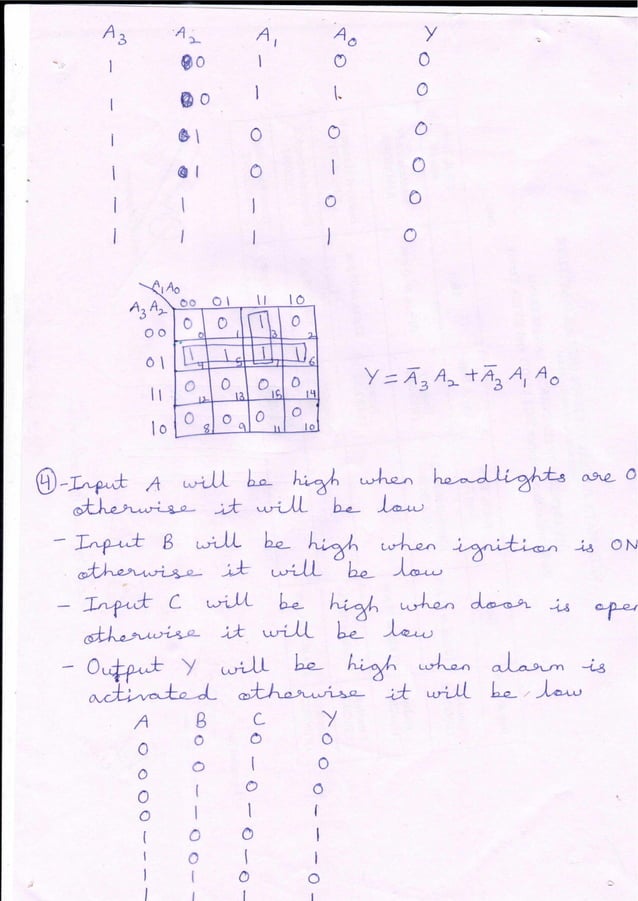 A3 A2 A1 A0 Y
1 0 1 0 0
1 0 1 1 0
1 1 0 0 0
1 1 0 1 0
1 1 1 0 0
1 1 1 1 0
A1A0
A3A2 00 01 11 10
00 0 0 0 1 1 3 0 2
01 1 4 1 5 1 7 1 6
11 0 12 0 13 0 15 0 14
10 0 8 0 9 0 11 0 10
Y = Ā3 A2 + Ā3 A1 A0
④-Input A will be high when headlights are O
otherwise it will be low
- Input B will be high when ignition is ON
otherwise it will be low
- Input C will be high when door is open
otherwise it will be low
- Output Y will be high when alarm is
activated otherwise it will be low
A B C Y
0 0 0 0
0 0 1 0
0 1 0 0
0 1 1 1
1 0 0 1
1 0 1 1
1 1 0 0
1 1 1 1